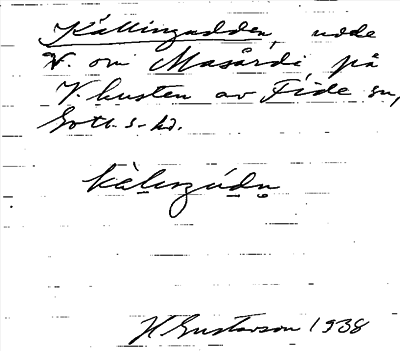 Källingudden, udde
V. om Masårdi på
V. kusten av Fide sn,
Gotl. s. hd.
H Gustavson 1938